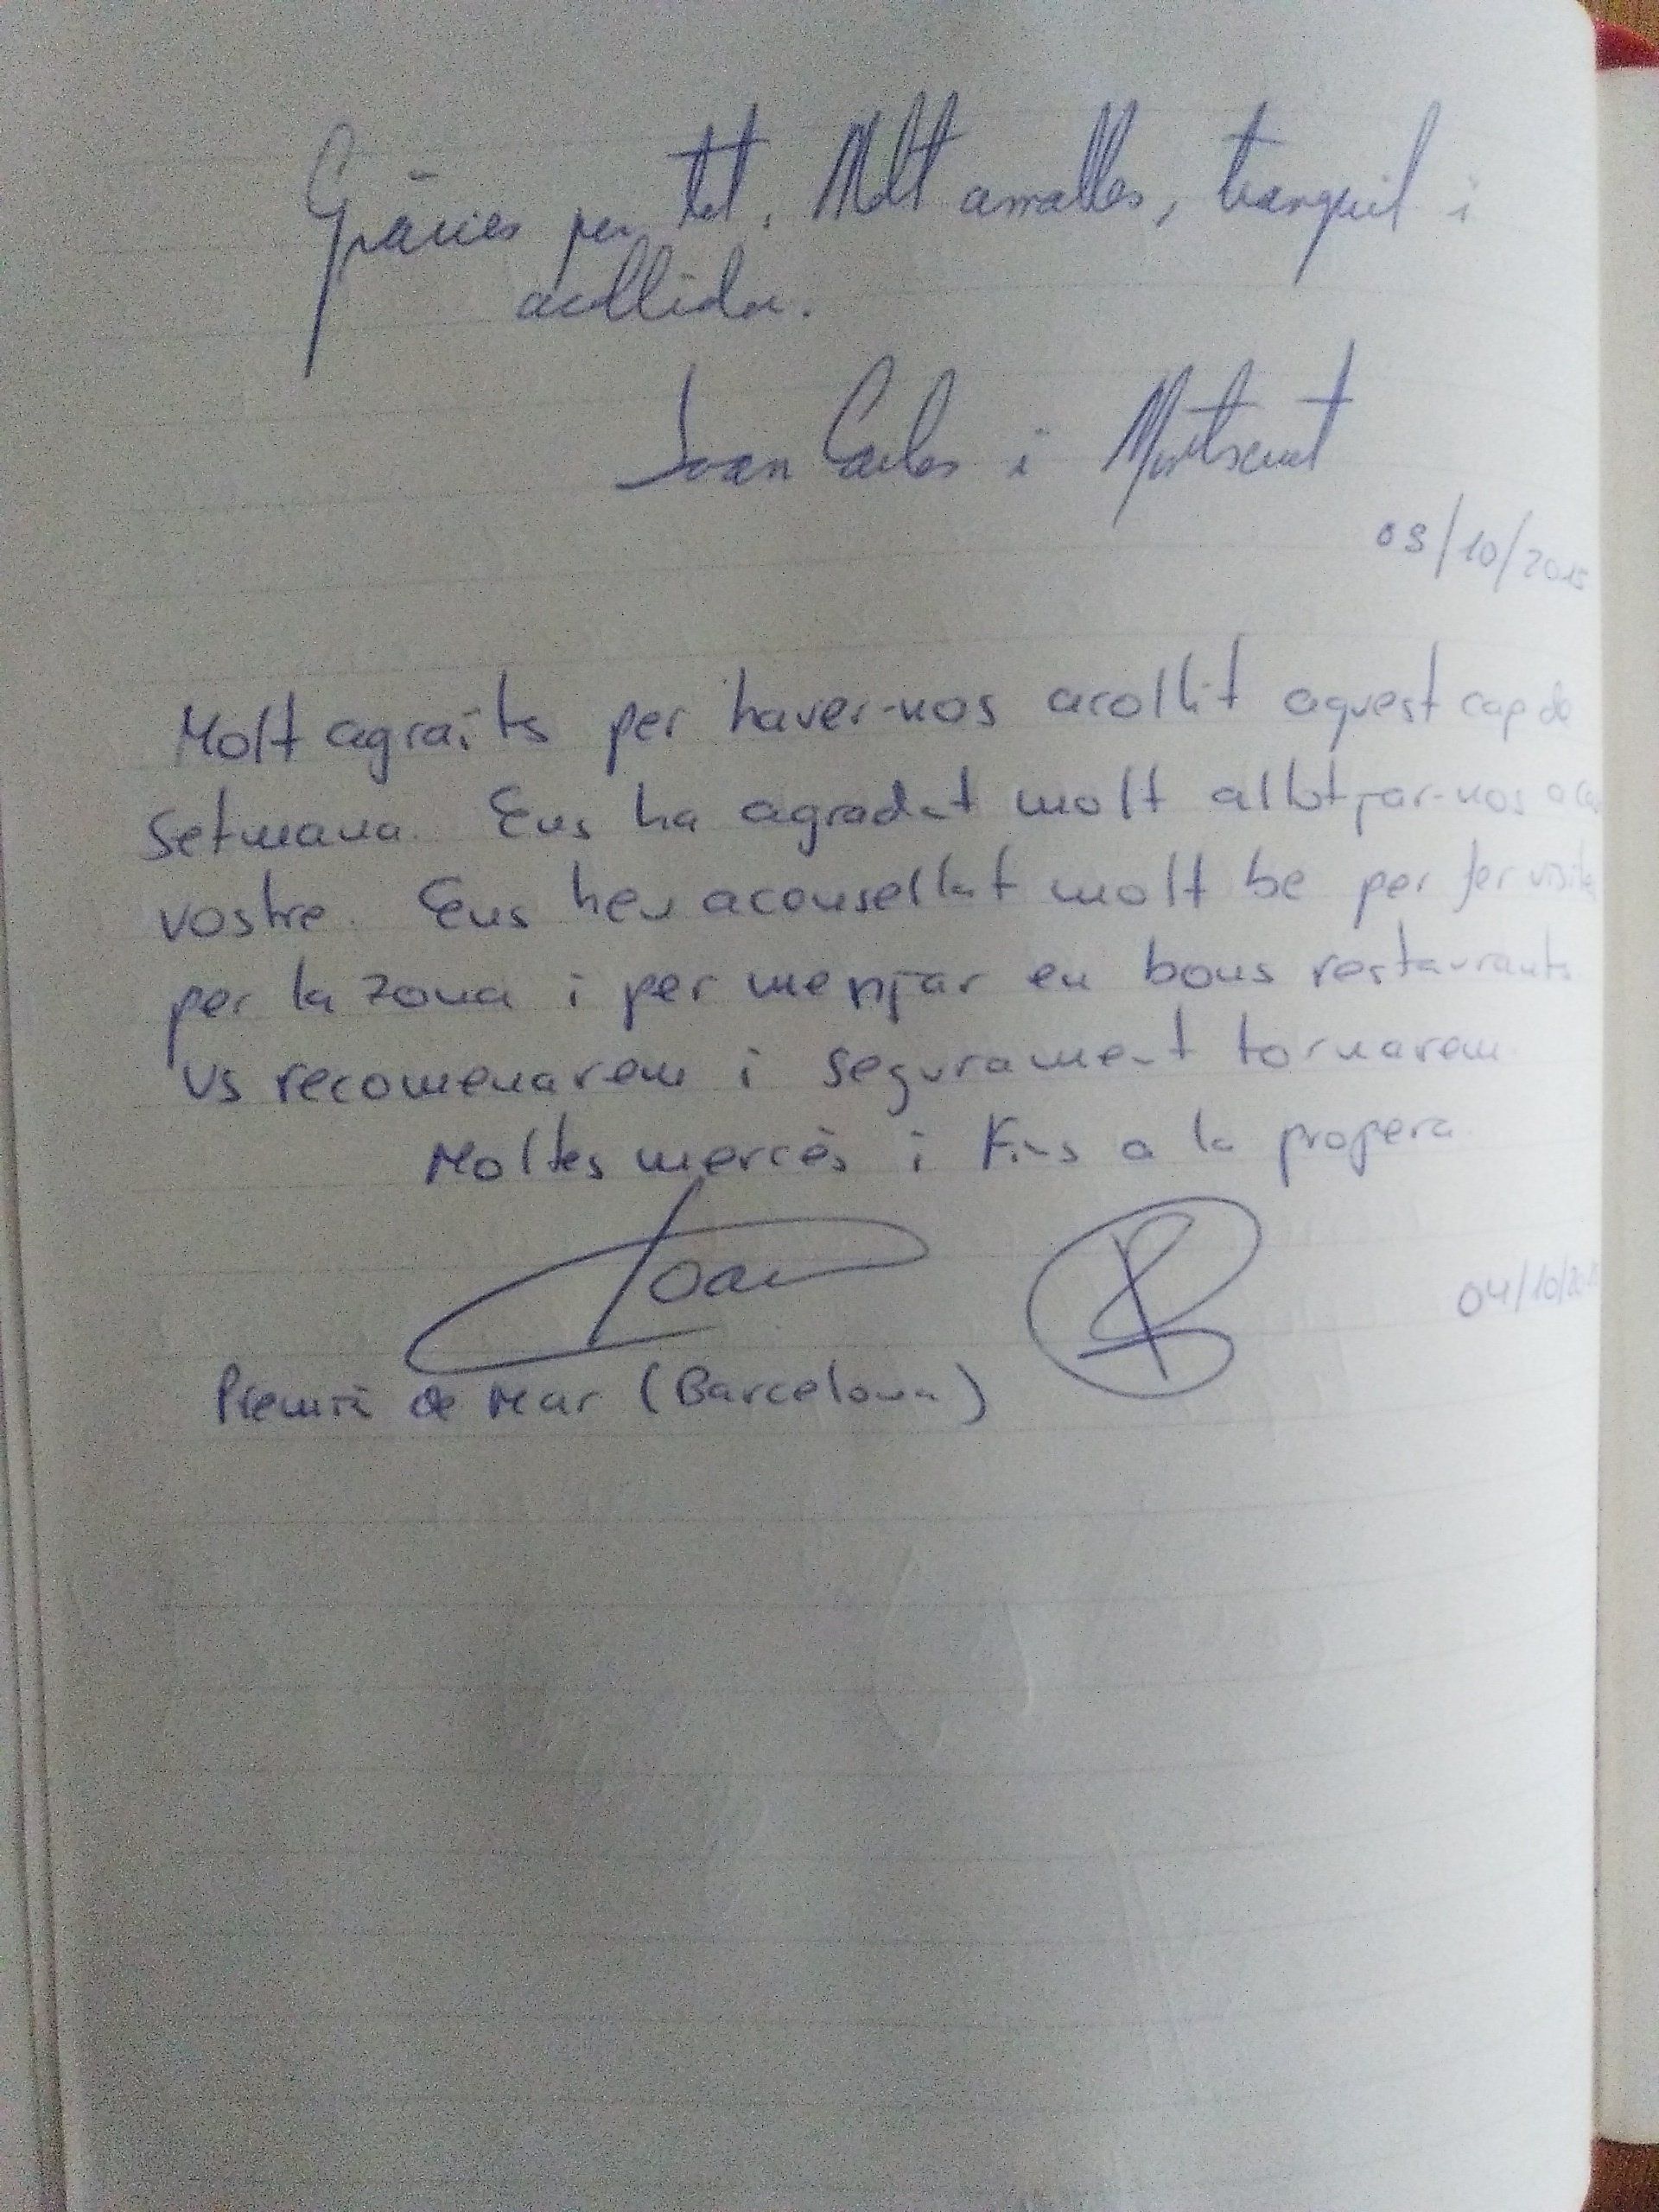 Gràcies per tot. Molt amables, tranquil i
acollidor.
Joan Carles i Montserrat
03/10/2015
Molt agraïts per haver-nos acollit aquest cap de
setmana. Ens ha agradat molt allotjar-nos a ca
vostre. Ens heu aconsellat molt be per fer visites
per la zona i per menjar en bons restaurants
us recomenarem i segurament tornarem
Moltes mercès i Fins a la propera
Joan
04/10/20
Premià de Mar (Barcelona)